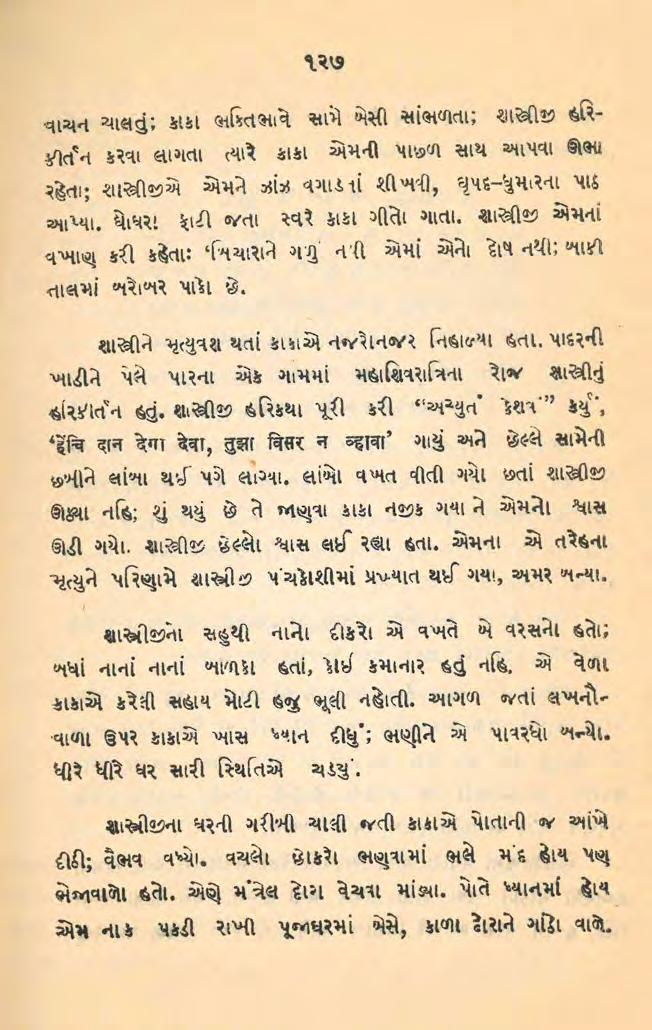 ૧૨૭
વાચન ચાલતું; કાકા ભક્તિભાવે સામે બેસી સાંભળતા; શાસ્ત્રીજી હરિ-
કીર્તન કરવા લાગતા ત્યારે કાકા એમની પાછળ સાથ આપવા ઊભા
રહેતા; શાસ્ત્રીજીએ એમને ઝાંઝ વગાડતાં શીખવી, ધૃપદ–ધુમારના પાઠ
આપ્યા. ઘોઘરા ફાટી જતા સ્વરે કાકા ગીતો ગાતા. શાસ્ત્રીજી એમનાં
વખાણ કરી કહેતાઃ ‘બિચારાને ગળું નથી એમાં એનો દોષ નથી; બાકી
તાલમાં બરોબર પાકો છે.
શાસ્ત્રીને મૃત્યુવશ થતાં કાકાએ નજરોનજર નિહાળ્યા હતા. પાદરની
ખાડીને પેલે પારના એક ગામમાં મહાશિવરાત્રિના રોજ શાસ્ત્રીનું
હરિકીર્તન હતું. શાસ્ત્રીજી હરિકથા પૂરી કરી “અચ્યુતં કેશવં” કર્યું,
‘हेंचि दान देगा देवा, तुझा विसर न व्हावा’ ગાયું અને છેલ્લે સામેની
છબીને લાંબા થઈ પગે લાગ્યા. લાંબો વખત વીતી ગયો છતાં શાસ્ત્રીજી
ઊઠ્યા નહિ; શું થયું છે તે જાણવા કાકા નજીક ગયા ને એમનો શ્વાસ
ઊડી ગયો. શાસ્ત્રીજી છેલ્લો શ્વાસ લઈ રહ્યા હતા. એમના એ તરેહના
મૃત્યુને પરિણામે શાસ્ત્રીજી પંચક્રોશીમાં પ્રખ્યાત થઈ ગયા, અમર બન્યા.
શાસ્ત્રીજીનો સહુથી નાનો દીકરો એ વખતે બે વરસનો હતો;
બધાં નાનાં નાનાં બાળકો હતાં, કોઈ કમાનાર હતું નહિ. એ વેળા
કાકાએ કરેલી સહાય મોટી હજુ ભૂલી નહોતી. આગળ જતાં લખનૌ-
વાળા ઉપર કાકાએ ખાસ ધ્યાન દીધું; ભણીને એ પાવરધો બન્યો.
ધીરે ધીરે ઘર સારી સ્થિતિએ ચડયું.
શાસ્ત્રીજીના ઘરની ગરીબી ચાલી જતી કાકાએ પોતાની જ આંખે
દીઠી; વૈભવ વધ્યો. વચલો છોકરો ભણવામાં ભલે મંદ હોય પણ
ભેજાવાળો હતો. એણે મંત્રેલ દોરા વેચવા માંડ્યા. પોતે ધ્યાનમાં હોય
એમ નાક પકડી રાખી પૂજાઘરમાં બેસે, કાળા દોરાને ગાંઠો વાળે.